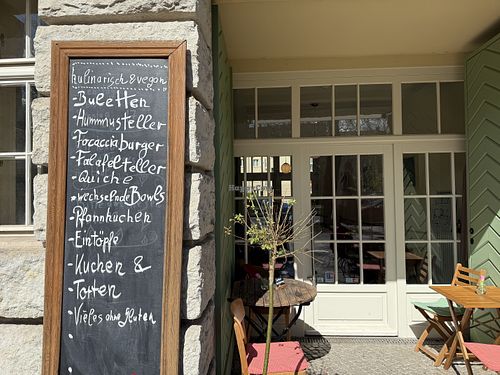 kulinarisch & vegan
- Buletten
- Hummusteller
- Focaccia burger
- Falafelteller
- Quiche
* wechselnde Bowls
- Pfannkuchen
- Eintöpfe
- Kuchen &
- Torten
- Vieles ohne Gluten